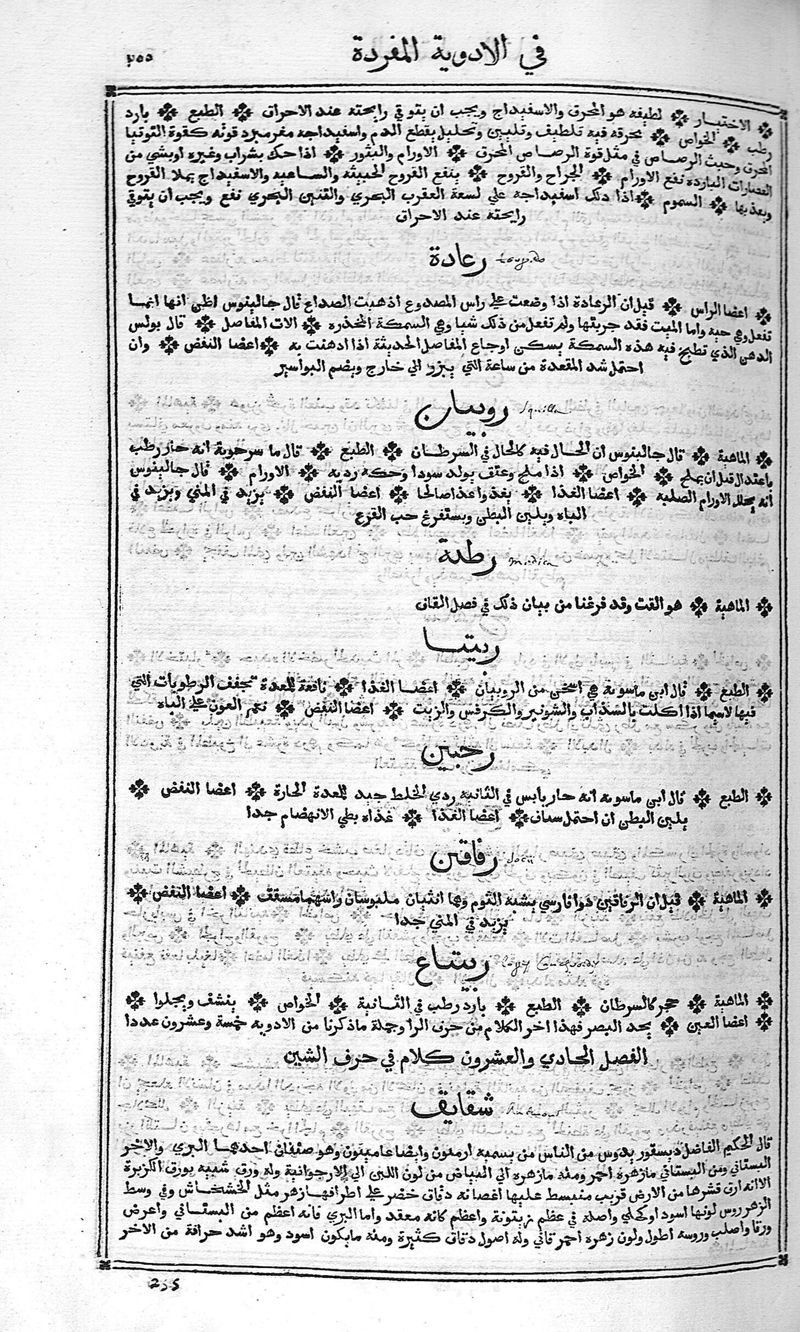 في الادوية المفردة
٢٥٥
❖ الاختيار ❖ لطيفه هو المحرق والاسفيداج ويجب ان يتوقي رايحته عند الاحراق ❖ الطبع ❖ بارد
رطب ❖ الخواص ❖ بحرقه فيه تلطيف وتليين وتحليل يقطع الدم واسفيداجه مغر مبرد قوته كقوة التوتيا
المحرق وخبث الرصاص في مثل قوة الرصاص المحرق ❖ الاورام والبثور ❖ اذا حك بشراب وغيره اوبشي من
العصارات البارده نفع الاورام ❖ الجراح والقروح ❖ ينفع القروح الخبيثه والساعيه والاسفيداج يملا القروح
ويعذبها ❖ السموم ❖ اذا دلك اسفيداجه علي لسعة العقرب البحري والتنين البحري نفع ويجب ان يتوقي
رايحته عند الاحراق
رعادة torpedo
❖ اعضا الراس ❖ قيل ان الرعادة اذا وضعت علي راس المصدوع اذهبت الصداع قال جالينوس اظن انها انما
تفعل وهي حيه واما الميت فقد جربتها ولم تفعل من ذلك شيا وهي السمكة المخدره ❖ الات المفاصل ❖ قال بولس
الدهن الذي تطبخ فيه هذه السمكة يسكن اوجاع المفاصل الحديثة اذا ادهنت به ❖ اعضا النفض ❖ وان
احتمل شد المقعدة من ساعة التي يبرز الي خارج ويضم البواسير
روبيان Squilla
❖ الماهية ❖ قال جالينوس ان الحال فيه كالحال في السرطان ❖ الطبع ❖ قال ما سرحوية انه حار رطب
باعتدال قبل ان يملح ❖ الخواص ❖ اذا ملح وعتق يولد سودا وحكه رديه ❖ الاورام ❖ قال جالينوس
انه يحلل الاورام الصلبه ❖ اعضا الغذا ❖ يغذوا غذا صالحا ❖ اعضا النفض ❖ يزيد في المني ويزيد في
الباه ويلين البطن ويستفرغ حب القرع
رطبة medica
❖ الماهية ❖ هو القت وقد فرغنا من بيان ذلك في فصل القاف
ربيتا
❖ الطبع ❖ قال ابن ماسويه هي اسخن من الروبيان ❖ اعضا الغذا ❖ نافعة للمعدة تجفف الرطوبات التي
فيها لاسيما اذا اكلت بالسذاب والشونيز والكرفس والزيت ❖ اعضا النفض ❖ نعم العون علي الباه
رجبين
❖ الطبع ❖ قال ابن ماسويه انه حار يابس في الثانيه ردي الخلط جيد للمعدة الحارة ❖ اعضا النفض ❖
يلين البطن ان احتمل ❖ اعضا الغذا ❖ غذاه بطي الانهضام جدا
رفاقين
❖ الماهية ❖ قيل ان الرفاقين دوا فارسي يشبه الثوم وهما اثنان ملبوسان ❖ اعضا النفض ❖
يزيد في المني جدا
ربيتاع
❖ الماهية ❖ حجر كالسرطان ❖ الطبع ❖ بارد رطب في الثانية ❖ الخواص ❖ ينشف ويجلوا ❖
❖ اعضا العين ❖ يحد البصر فهذا اخر الكلام من حرف الرا وجملة ماذكرنا من الادويه خمسة وعشرون عددا
الفصل الحادي والعشرون كلام في حرف الشين
شقايق
قال الحكيم الفاضل ديسقوريدوس من الناس من يسميه ارمعون وايضا عامينون وهو صنفان احدهما البري والاخر
البستاني ومن البستاني مازهره احمر ومنه مازهره الي البياض من لون اللبن الي الارجوانية وله ورق شبيه بورق الكزبرة
الا انه ارق قشرها من الارض قريب منبسط عليها اغصانه دقاق خضر علي اطرافها زهر مثل الخشخاش وفي وسط
الزهر روس لونها اسود اوكحلي واصله في عظم زيتونة واعظم كانه معقد واما البري فانه اعظم من البستاني واعرض
ورقا واصلب وروسه اطول ولون زهره احمر قاني وله اصول دقاق كثيرة ومنه مايكون اسود وهو اشد حرافة من الاخر
255